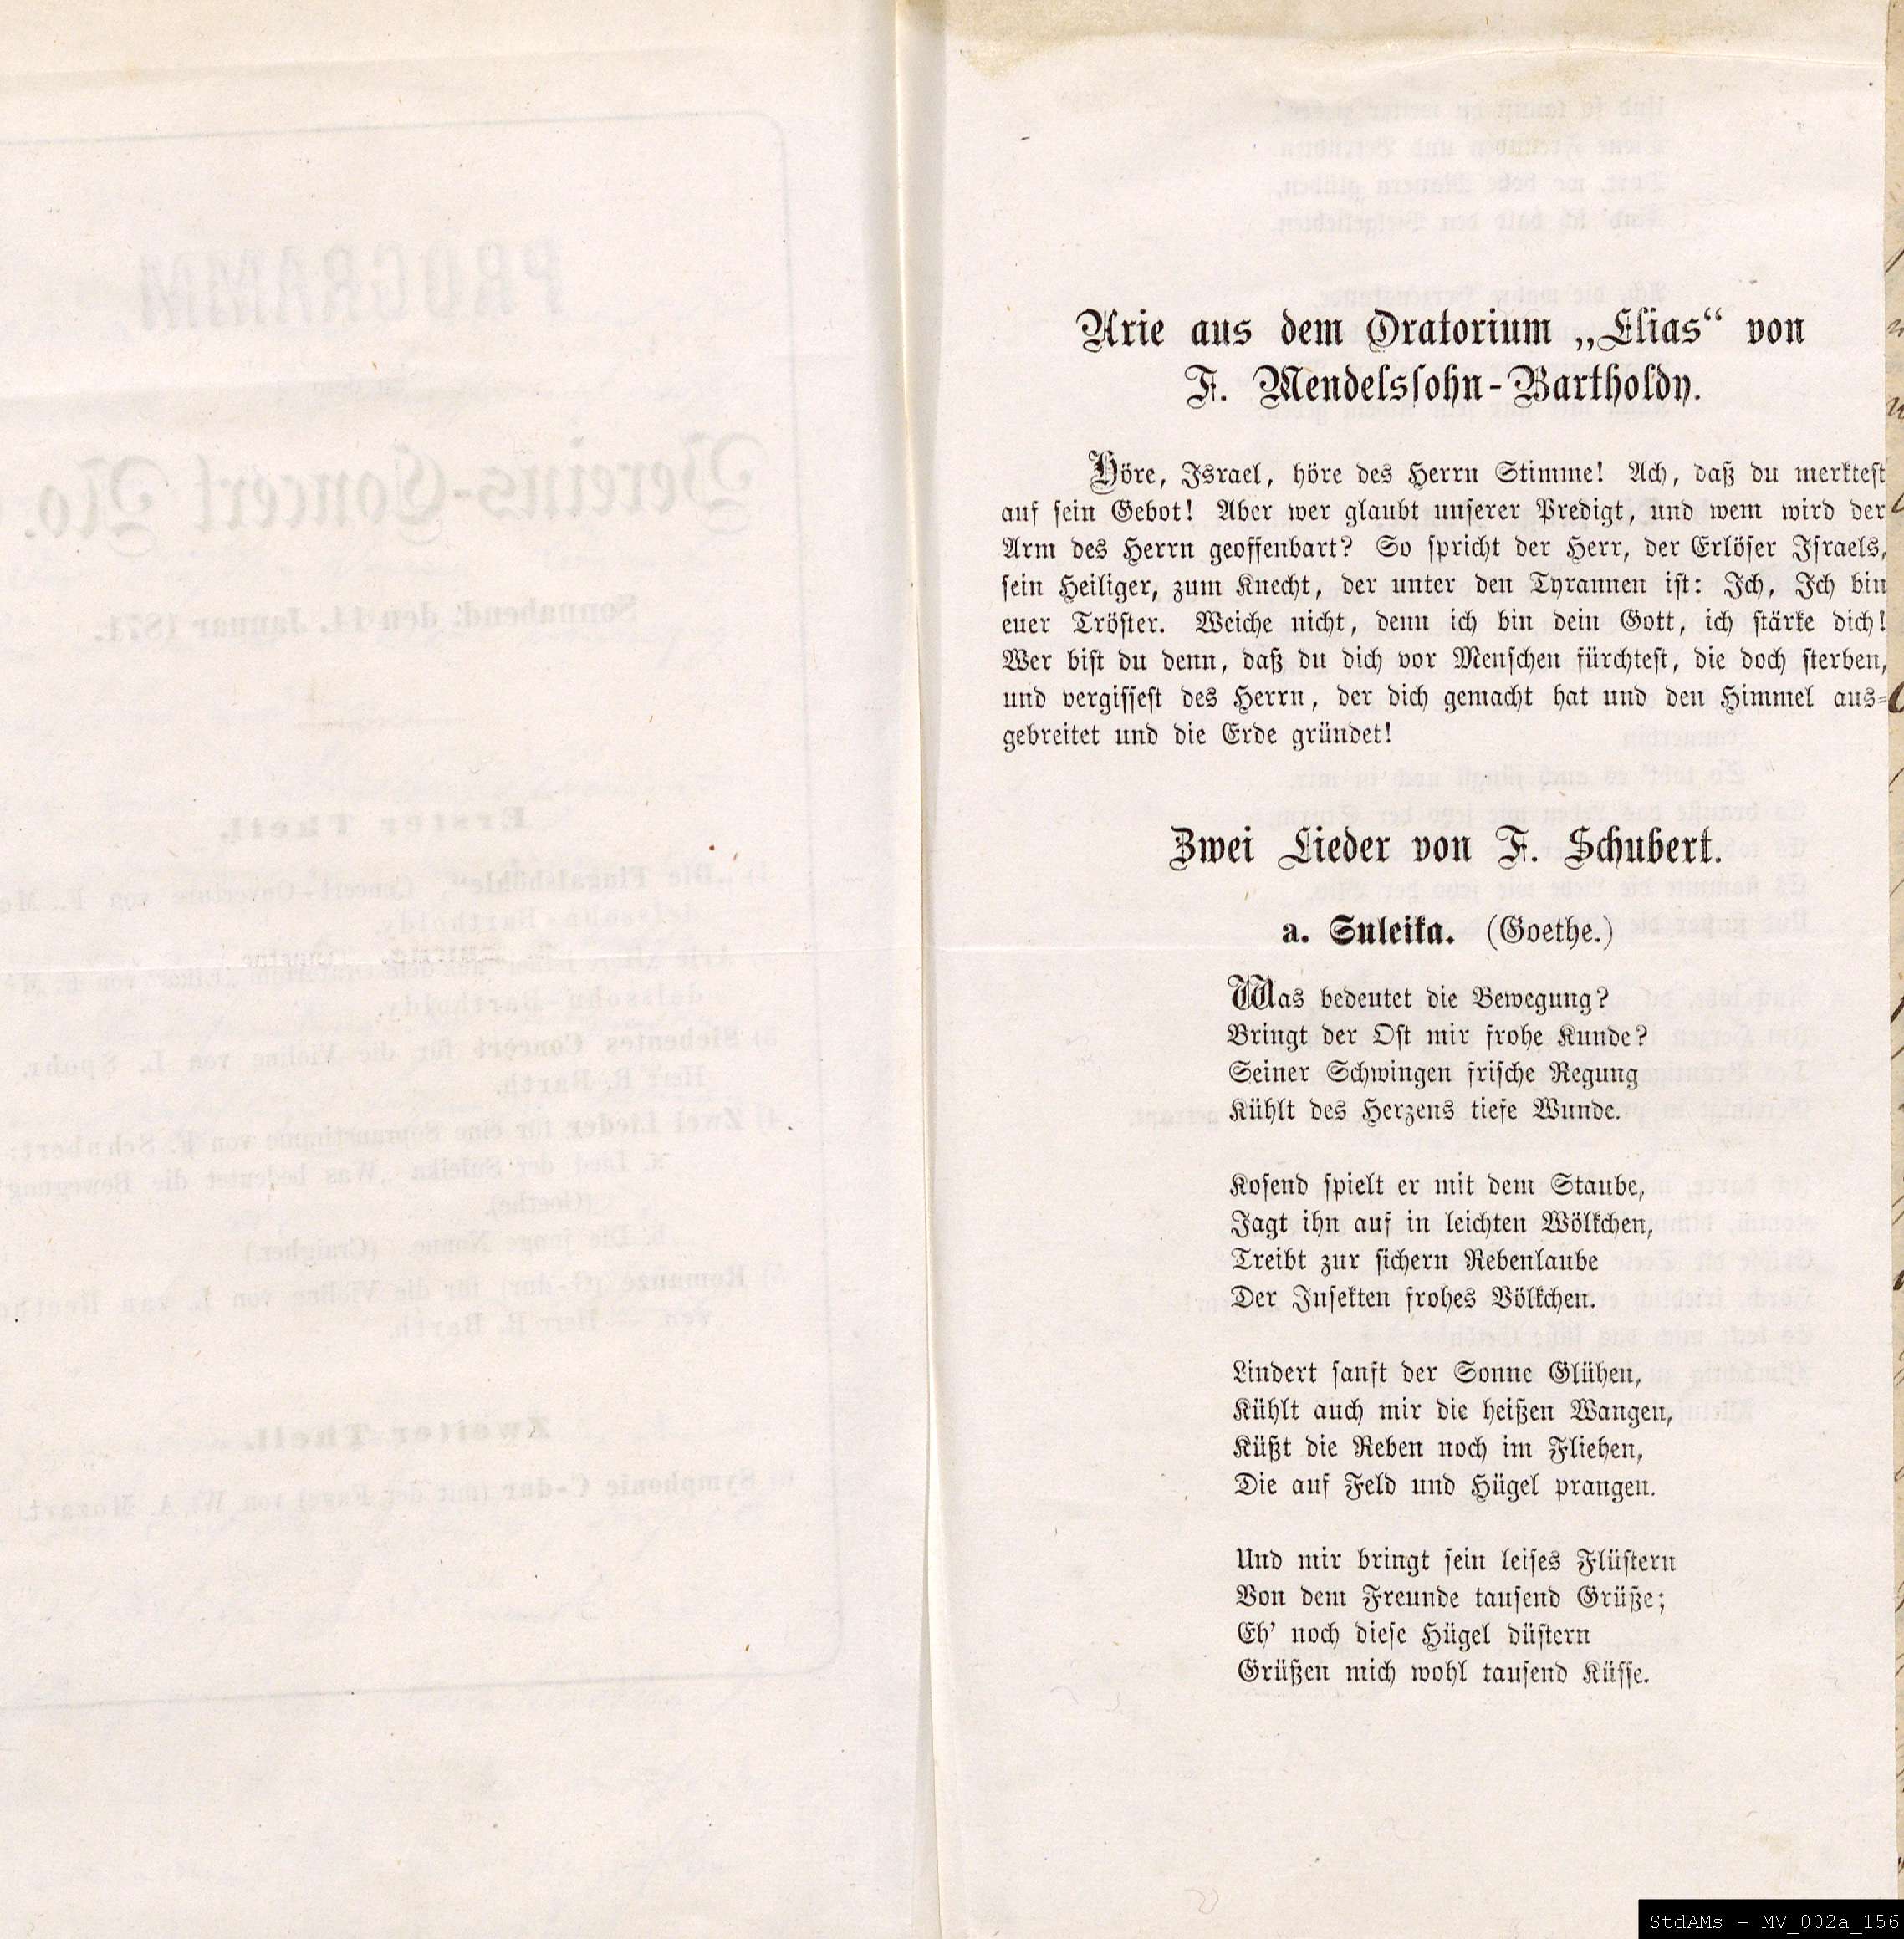 Arie aus dem Oratorium „Elias“ von
F. Mendelssohn-Bartholdy.
Höre, Israel, höre des Herrn Stimme! Ach, daß du merktest
auf sein Gebot! Aber wer glaubt unserer Predigt, und wem wird der
Arm des Herrn geoffenbart? So spricht der Herr, der Erlöser Israels,
sein Heiliger, zum Knecht, der unter den Tyrannen ist: Ich, Ich bin
euer Tröster. Weiche nicht, denn ich bin dein Gott, ich stärke dich!
Wer bist du denn, daß du dich vor Menschen fürchtest, die doch sterben,
und vergissest des Herrn, der dich gemacht hat und den Himmel aus-
gebreitet und die Erde gründet!
Zwei Lieder von F. Schubert.
a. Suleika. (Goethe.)
Was bedeutet die Bewegung?
Bringt der Ost mir frohe Kunde?
Seiner Schwingen frische Regung
Kühlt des Herzens tiefe Wunde.
Kosend spielt er mit dem Staube,
Jagt ihn auf in leichten Wölkchen,
Treibt zur sichern Rebenlaube
Der Insekten frohes Völkchen.
Lindert sanft der Sonne Glühen,
Kühlt auch mir die heißen Wangen,
Küßt die Reben noch im Fliehen,
Die auf Feld und Hügel prangen.
Und mir bringt sein leises Flüstern
Von dem Freunde tausend Grüße;
Eh' noch diese Hügel düstern
Grüßen mich wohl tausend Küsse.
StdAMs - MV_002a_156